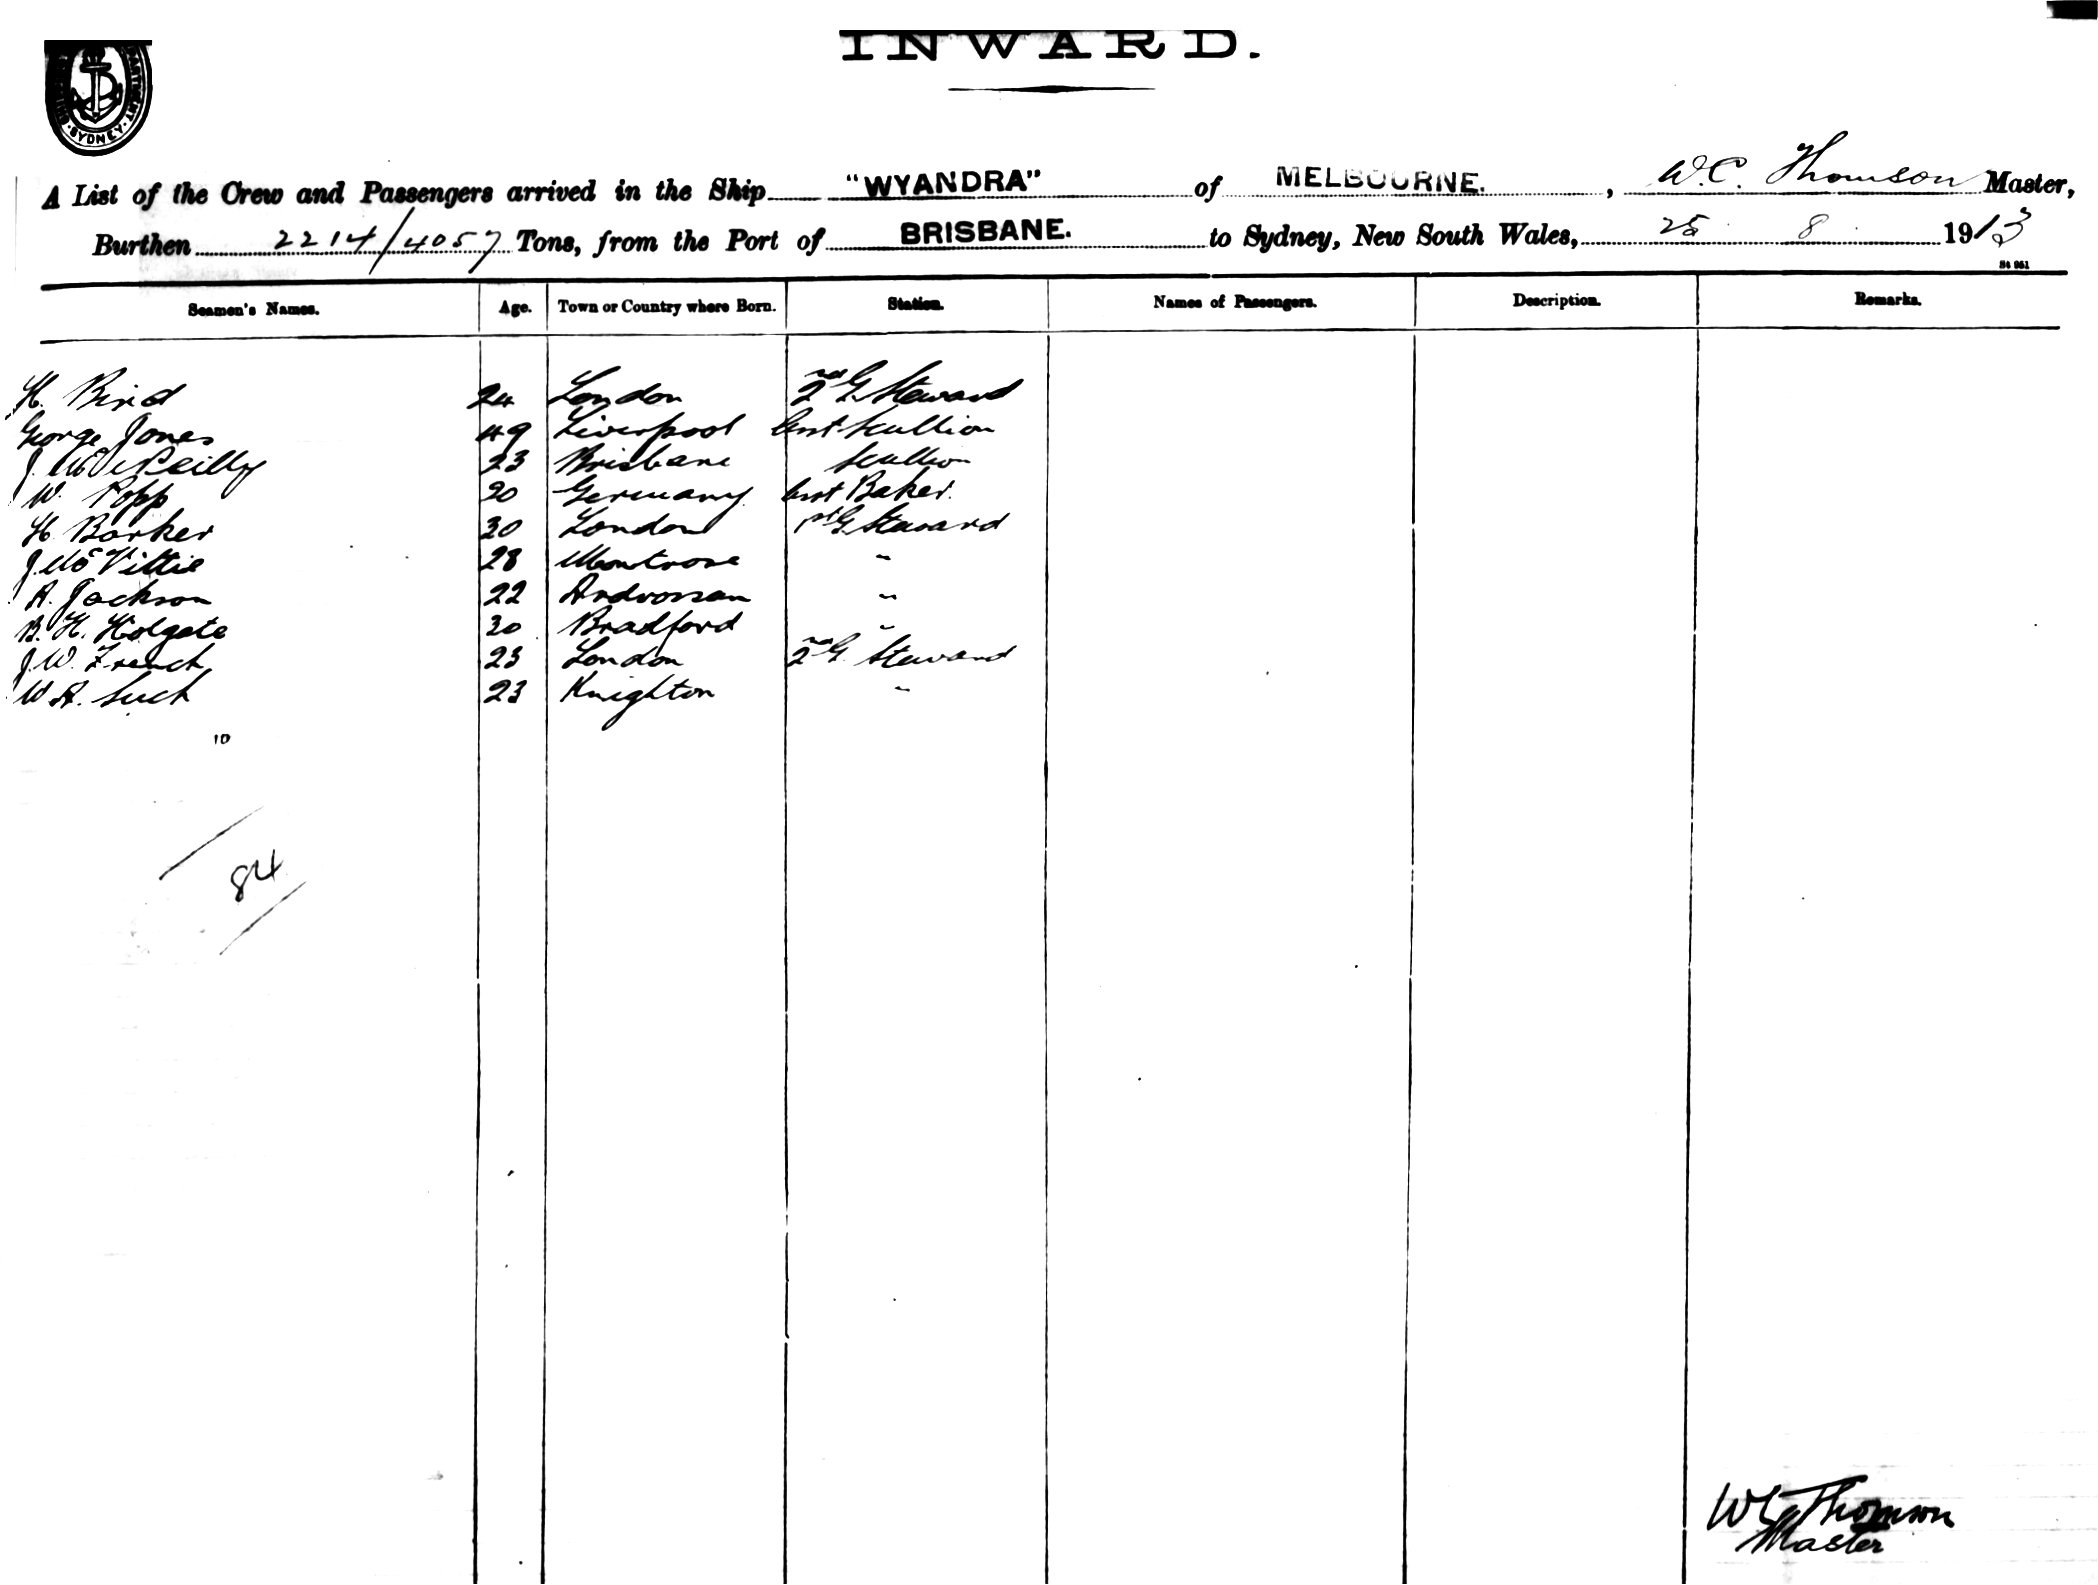 INWARD.
SYDNEY
A List of the Crew and Passengers arrived in the Ship "WYANDRA" of MELBOURNE. , W.C. Thomson Master,
Burthen 2214/4057 Tons, from the Port of BRISBANE. to Sydney, New South Wales, 25 8 1913
Seamen's Names. Age. Town or Country where Born. Station. Names of Passengers. Description. Remarks.
H. Bird 24 London 2nd G. Steward
George Jones 49 Liverpool Asst Scullion
J. Reilly 23 Brisbane Scullion
W. Popp 20 Germany Asst Baker.
H. Barker 30 London 1st G. Steward
J. McVittie 28 Montrose "
A. Jackson 22 Ardrossan "
B. H. Holgate 30 Bradford "
J. W. French 23 London 2nd G. Steward
W. A. Such 23 Knighton "
10
84
WC Thomson
Master